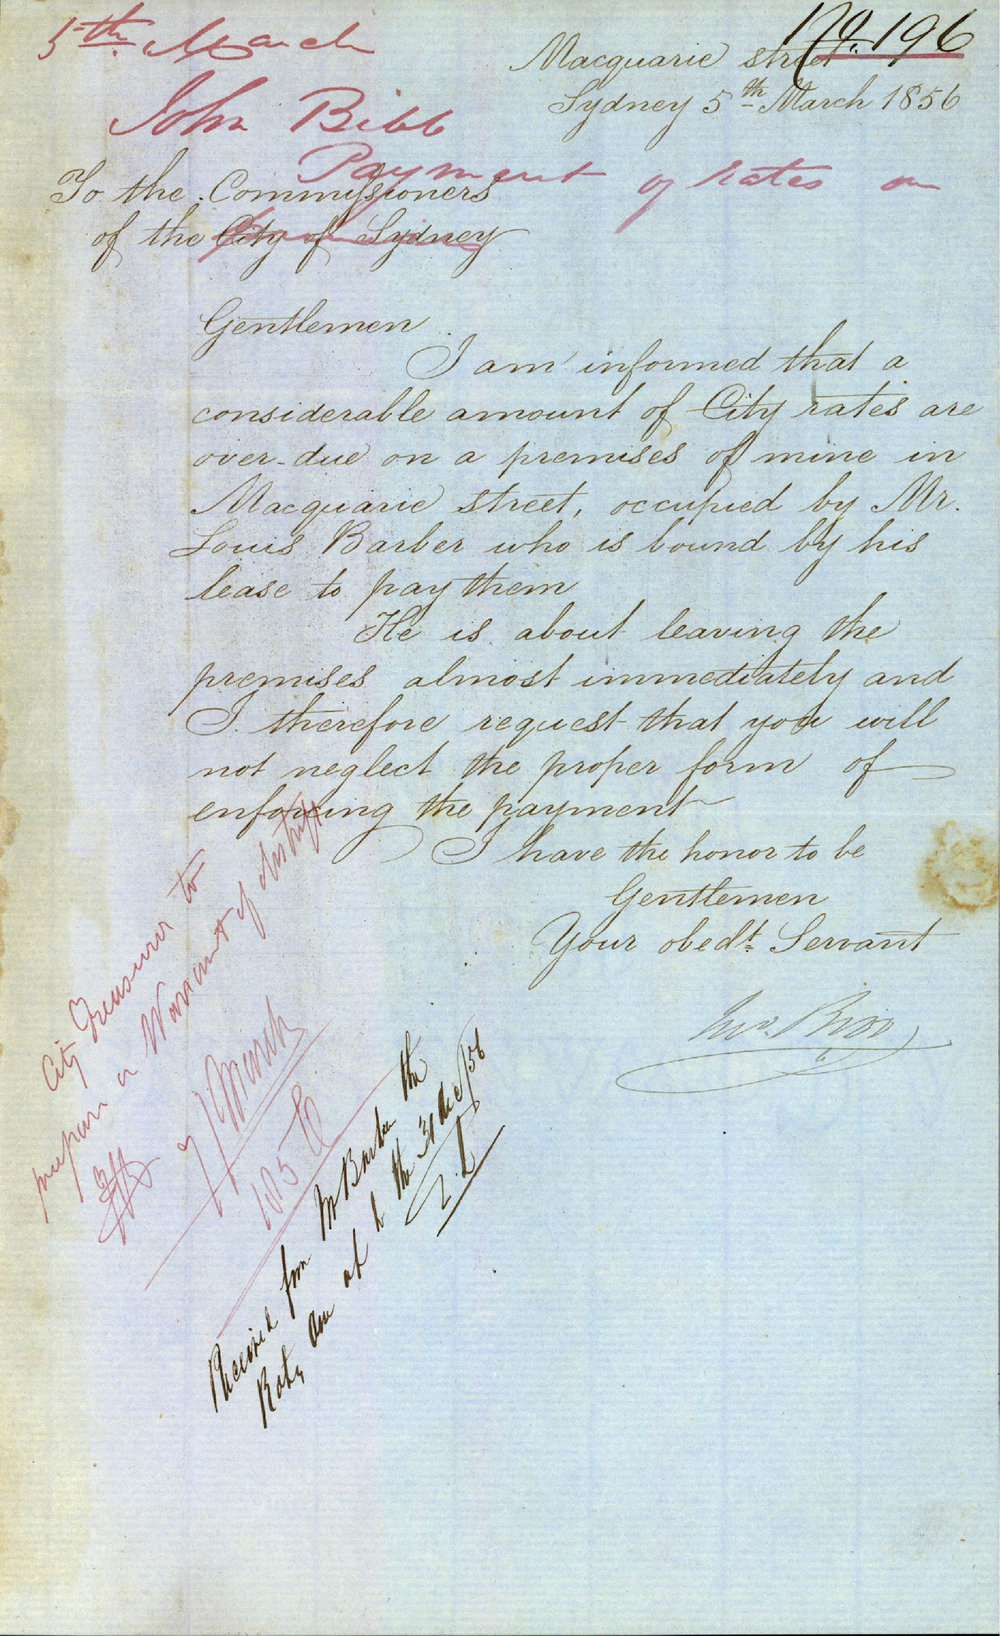 5th March
No. 196
Macquarie street
Sydney 5th March 1856
John Bibb
Payment of rates on
To the Commissioners
of the City of Sydney
Gentlemen
I am informed that a
considerable amount of City rates are
over-due on a premises of mine in
Macquarie street, occupied by Mr.
Louis Barber who is bound by his
lease to pay them
He is about leaving the
premises almost immediately and
I therefore request that you will
not neglect the proper form of
enforcing the payment
I have the honor to be
Gentlemen
Your obedt. Servant
Jno. Bibb
City Treasurer to
prepare a Warrant of distress
7/March
Received from Mr Barber the
Rates due up to the 31 Dec/56